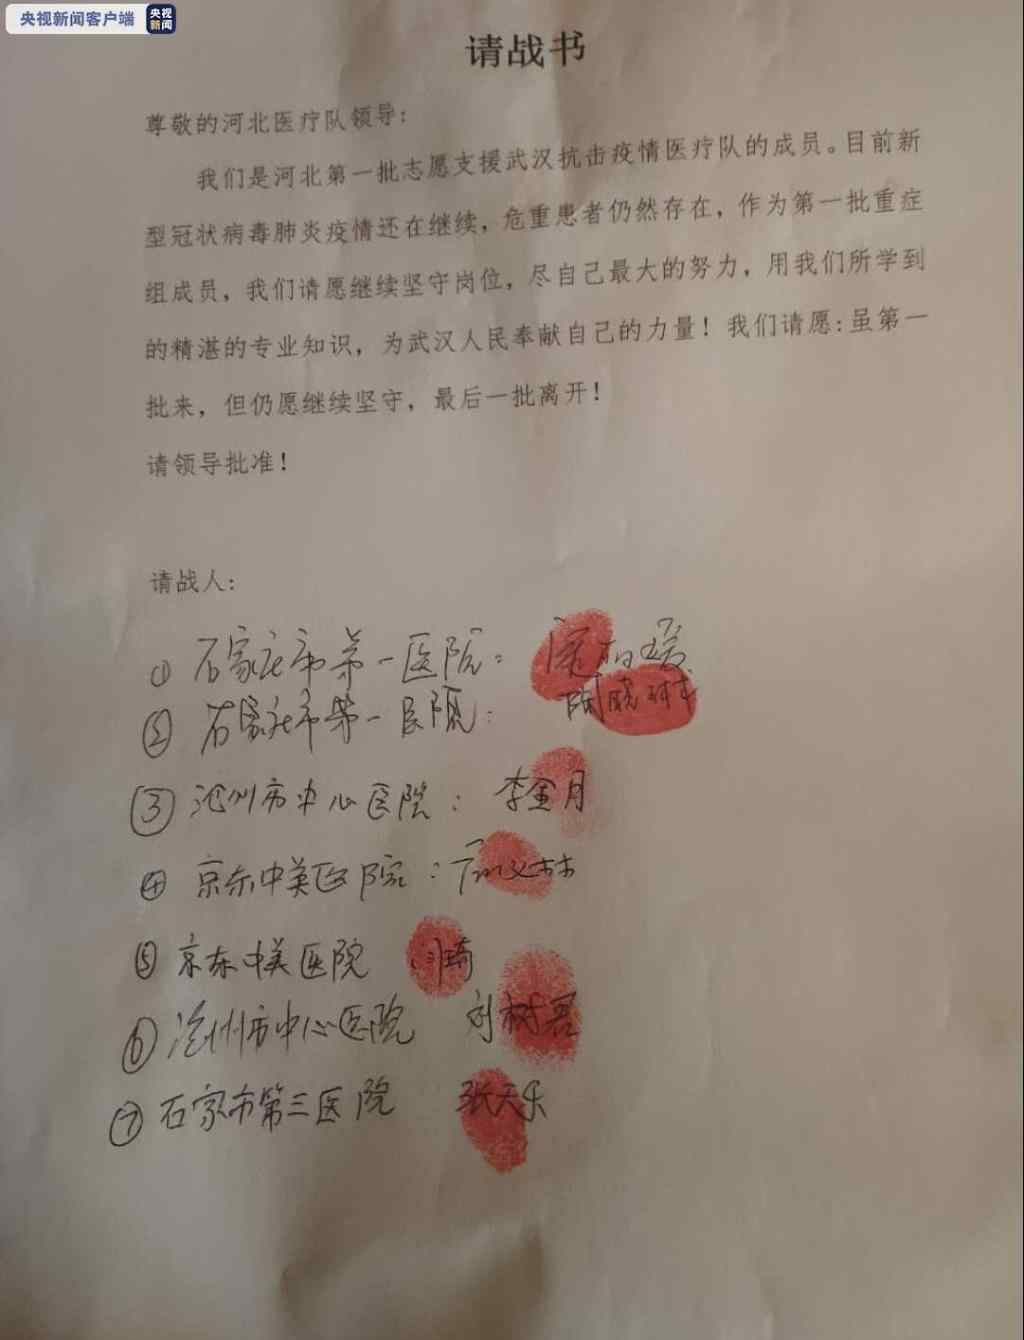 央视新闻客户端 央视新闻
请战书
尊敬的河北医疗队领导:
我们是河北第一批志愿支援武汉抗击疫情医疗队的成员。目前新
型冠状病毒肺炎疫情还在继续，危重患者仍然存在，作为第一批重症
组成员，我们请愿继续坚守岗位，尽自己最大的努力，用我们所学到
的精湛的专业知识，为武汉人民奉献自己的力量！我们请愿:虽第一
批来，但仍愿继续坚守，最后一批离开！
请领导批准！
请战人:
① 石家庄市第一医院:
② 石家庄市第一医院: 陶晓琳
③ 沧州市中心医院: 李金月
④ 京东中美医院:
⑤ 京东中美医院 闫琦
⑥ 沧州市中心医院 刘树君
⑦ 石家市第三医院 张天乐